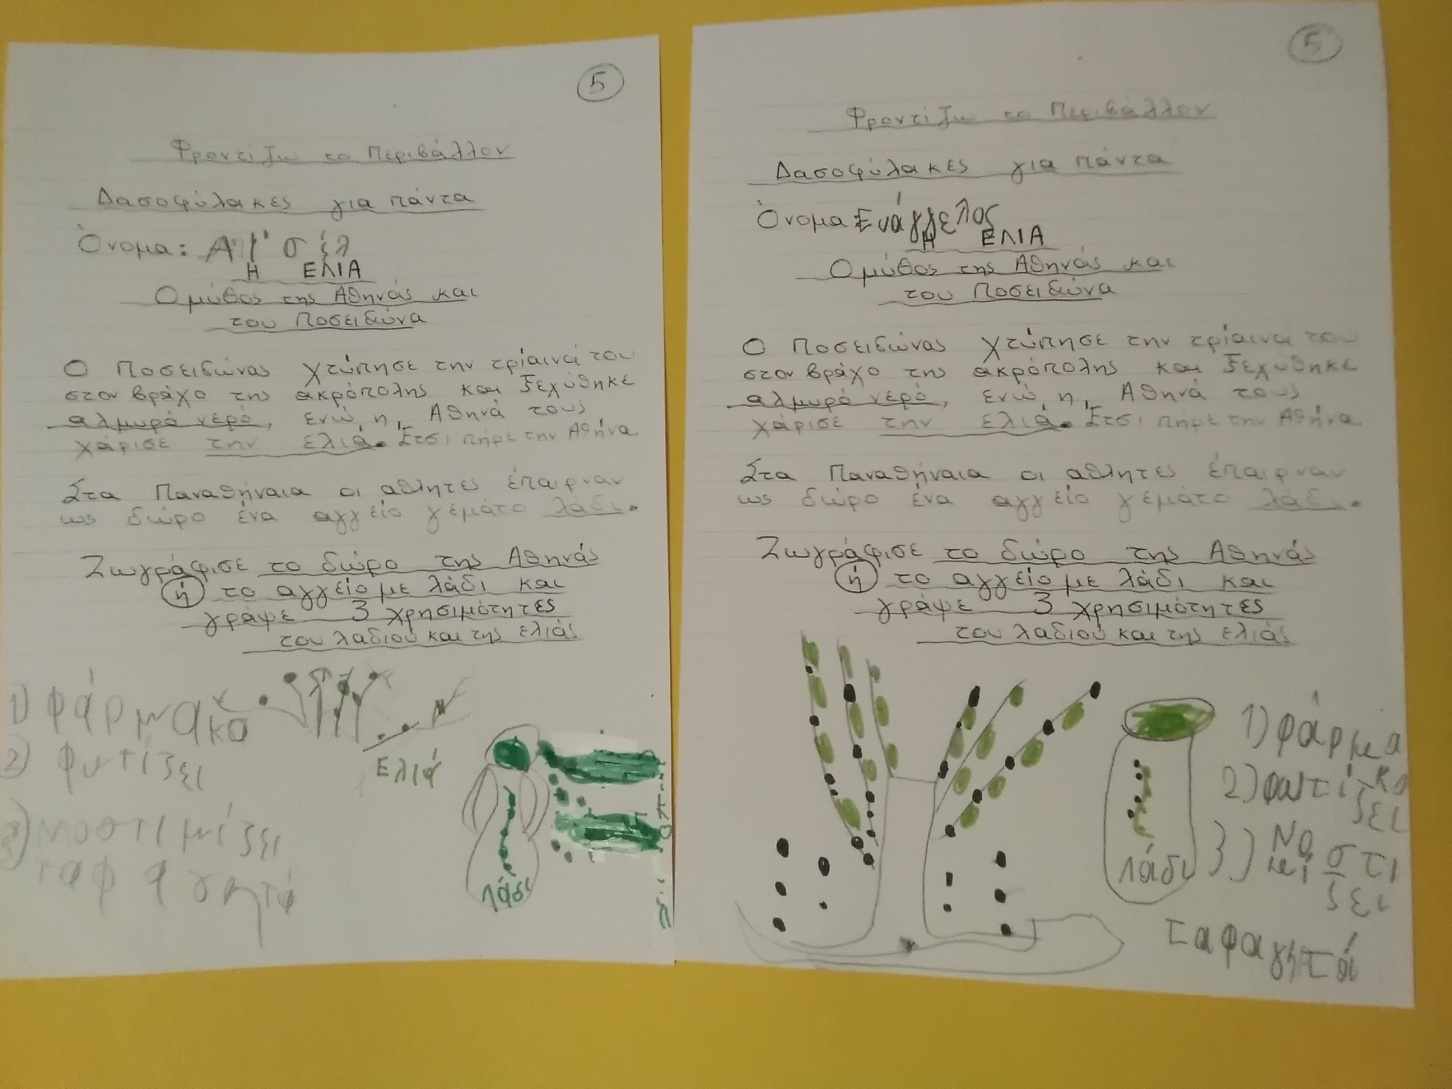 5
Φροντίζω το Περιβάλλον
Δασοφύλακες για πάντα
Όνομα:
Η ΕΛΙΑ
Ο μύθος της Αθηνάς και
του Ποσειδώνα
Ο Ποσειδώνας χτύπησε την τρίαινά του
στον βράχο της ακρόπολης και ξεχύθηκε
αλμυρό νερό, ενώ η, Αθηνά τους
χάρισε την ελιά. Έτσι πήρε την Αθήνα
Στα Παναθήναια οι αθλητες έπαιρναν
ως δώρο ένα αγγείο γεμάτο λάδι.
Ζωγράφισε το δώρο της Αθηνάς
ή το αγγείο με λάδι και
γράψε 3 χρησιμότητες
του λαδιού και της ελιάς
1) φάρμακο
2) φωτίζει
3) νοστιμίζει
τα φαγητά
Ελιά
λάδι
5
Φροντίζω το Περιβάλλον
Δασοφύλακες για πάντα
Όνομα: Ευάγγελος
Η ΕΛΙΑ
Ο μύθος της Αθηνάς και
του Ποσειδώνα
Ο Ποσειδώνας χτύπησε την τρίαινά του
στον βράχο της ακρόπολης και ξεχύθηκε
αλμυρό νερό, ενώ η, Αθηνά τους
χάρισε την ελιά. Έτσι πήρε την Αθήνα
Στα Παναθήναια οι αθλητες έπαιρναν
ως δώρο ένα αγγείο γεμάτο λάδι.
Ζωγράφισε το δώρο της Αθηνάς
ή το αγγείο με λάδι και
γράψε 3 χρησιμότητες
του λαδιού και της ελιάς
1) φάρμα
κο
2) φωτί
ζει
3) Νο στι
μί ζει
τα φαγητά
λάδι